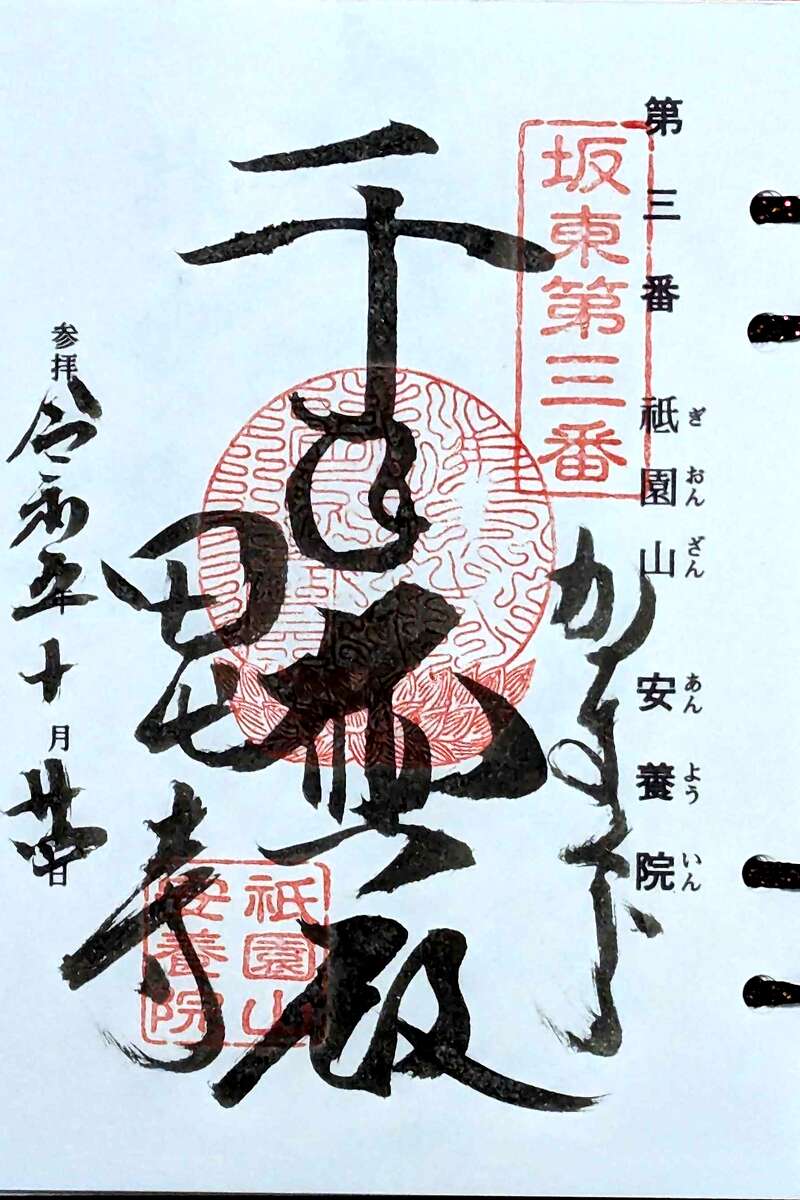 第三番 祇園山 安養院
ぎおんざん あんよういん
坂東第三番
千手
殿
田代寺
祇園山
安養院
参拝 令和五年十月廿日